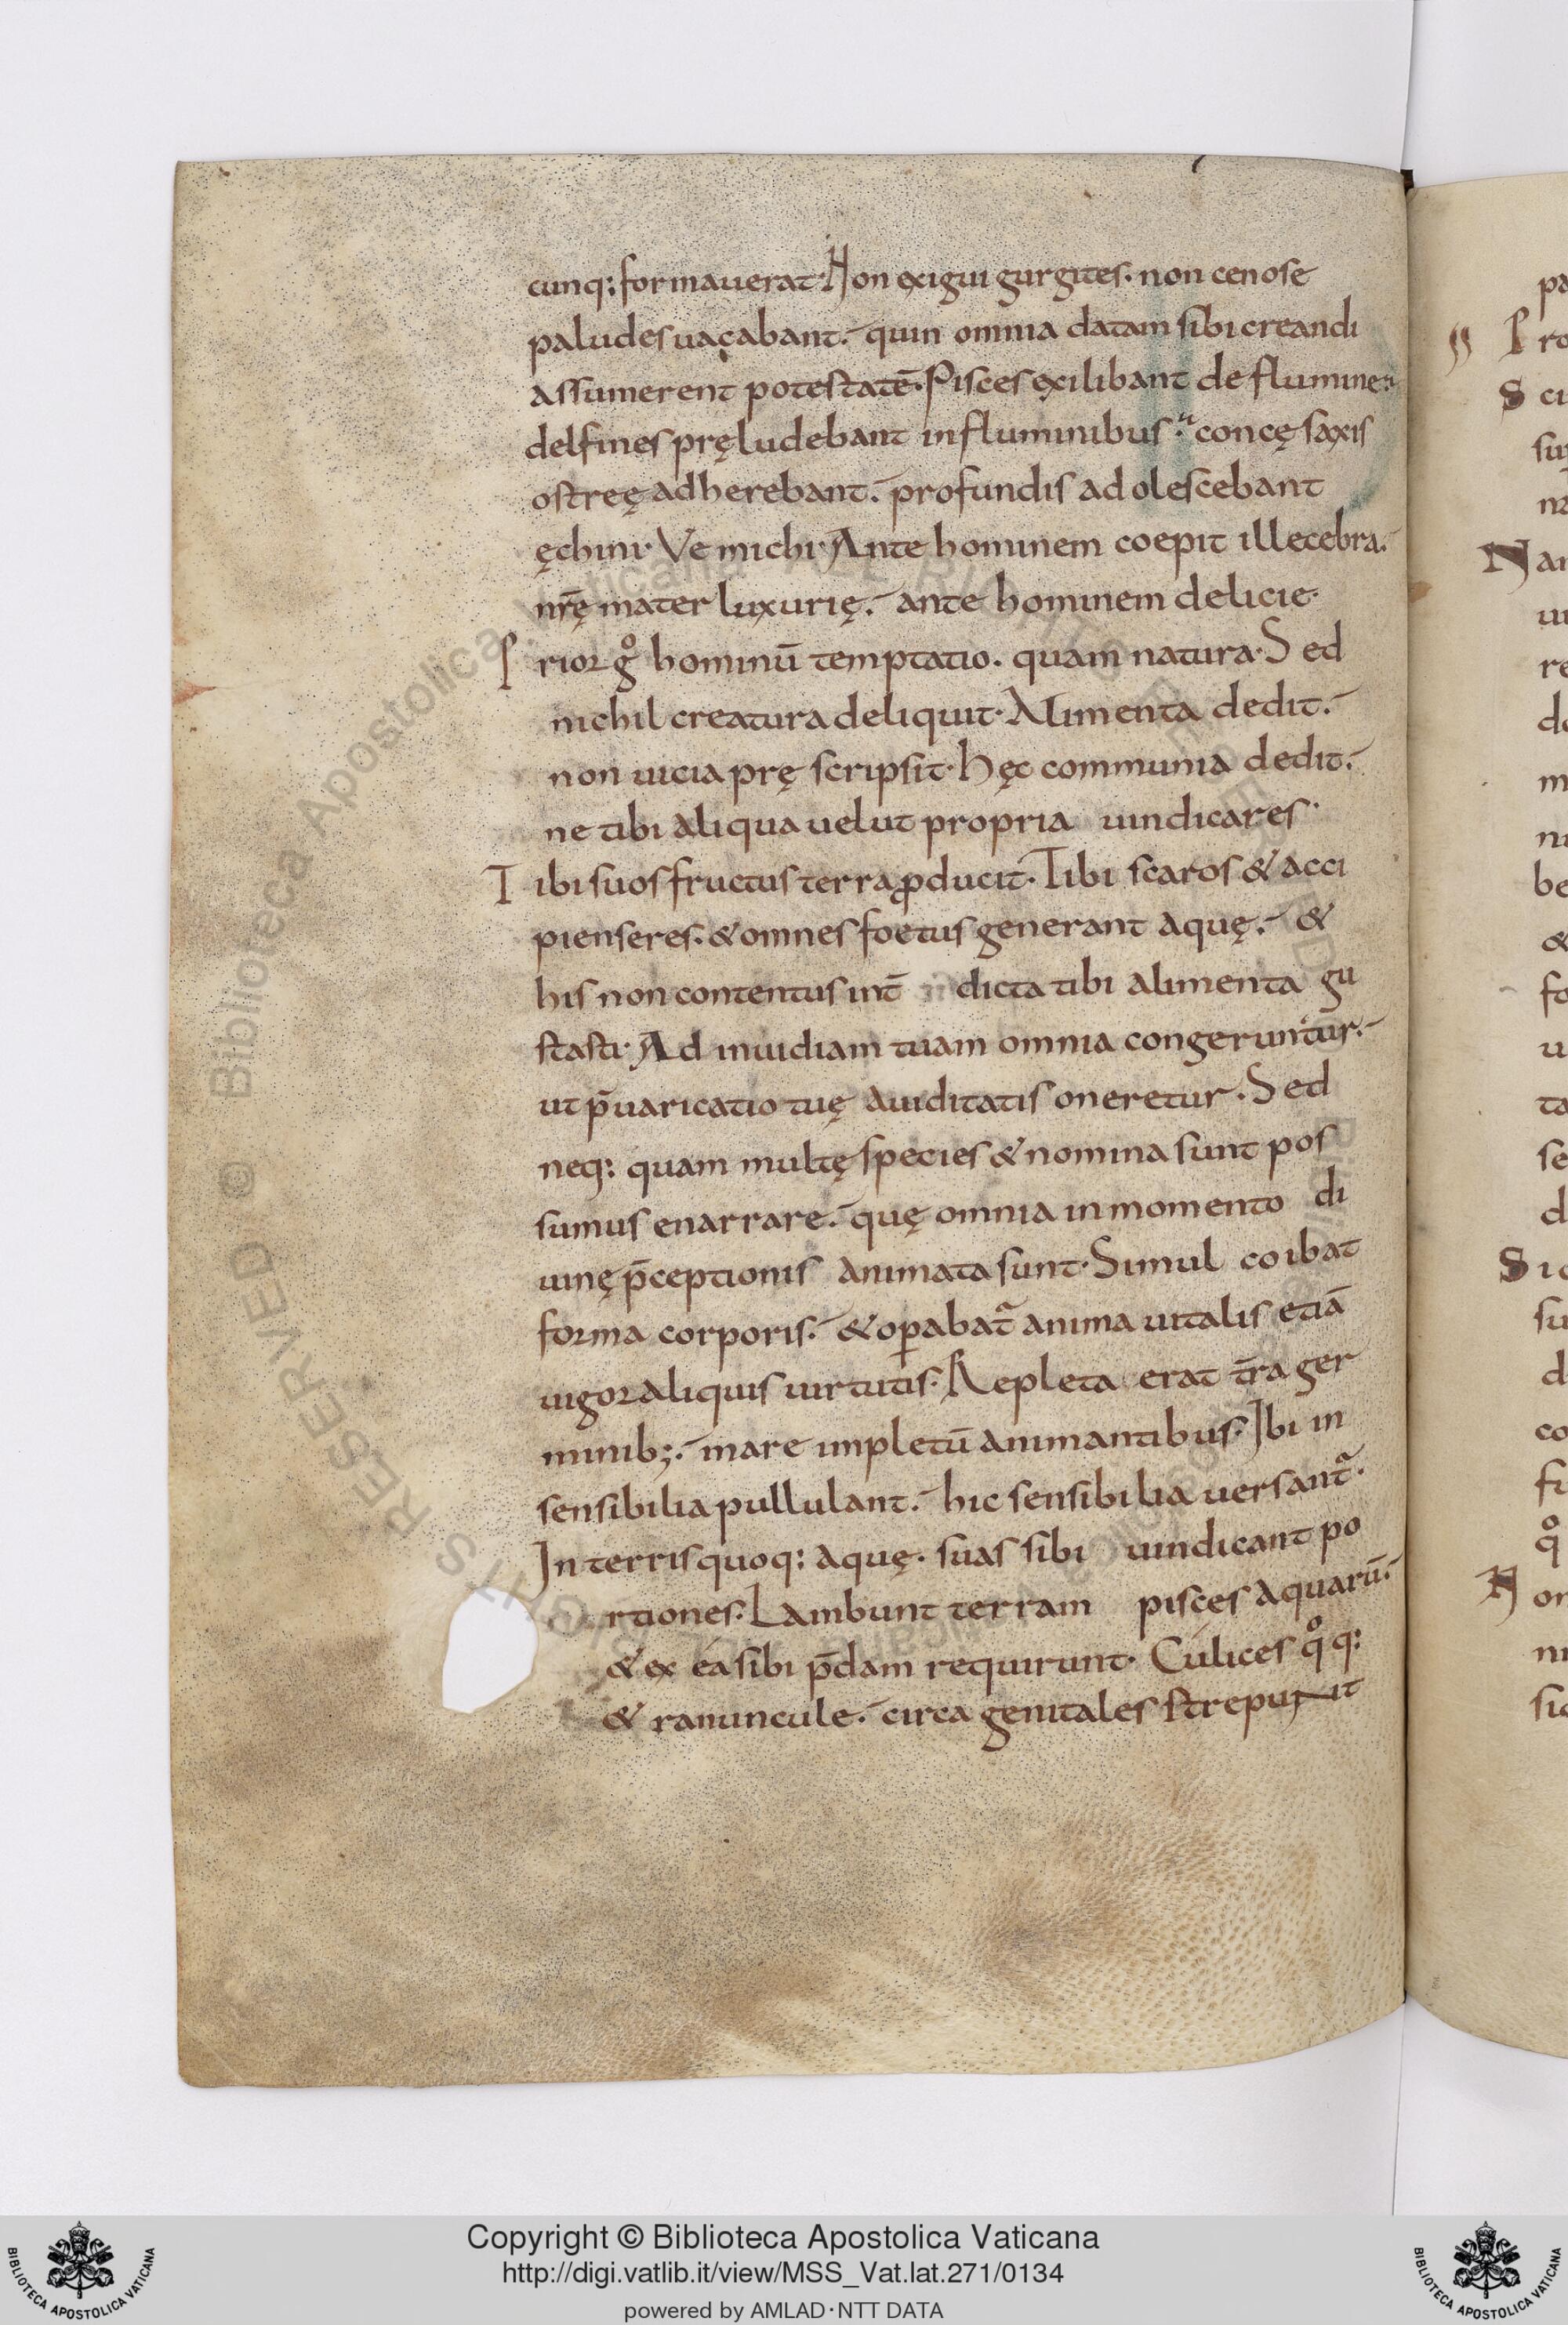 cunq; formauerat· Non exigui gurgites. non cenose
paludes uacabant. quin omnia datam sibi creandi
assumerent potestatē. Pisces exilibant de flumine.
delfines pręludebant in fluminibus. concę saxis
ostreę adherebant. profundis adolescebant
ęchini· Ve michi· Ante hominem coepit illecebra.
nr̄ę mater luxurię. ante hominem delicie·
Prior gͦ hominū temptatio. quam natura· Sed
nichil creatura deliquit· Alimenta dedit.
non uicia pręscripsit· Hęc communia dedit.
ne tibi aliqua uelut propria uindicares·
Tibi suos fructus terra ꝓducit· Tibi scaros & acci
pienseres. & omnes foetus generant aquę. &
his non contentus int̄ dicta tibi alimenta gu
stasti· Ad inuidiam tuam omnia congeruntur.
ut p̄uaricatio tuę auiditatis oneretur. Sed
neq; quam multę species & nomina sunt pos
sumus enarrare. quę omnia in momento di
uinę p̄ceptionis animata sunt· Simul coibat
forma corporis. & oꝑabat᷑ anima uitalis etiā
uigor aliquis uirtutis· Repleta erat t̄ra ger
minib;. mare impletū animantibus· Ibi in
sensibilia pullulant. hic sensibilia uersant᷑.
In terris quoq; aquę. suas sibi uindicant po
rtiones· Lambunt terram pisces aquarū.
& ex ea sibi p̄dam requirunt· Culices qͦq;
& ranuncule. circa genitales strepunt
Copyright © Biblioteca Apostolica Vaticana
http://digi.vatlib.it/view/MSS_Vat.lat.271/0134
powered by AMLAD·NTT DATA